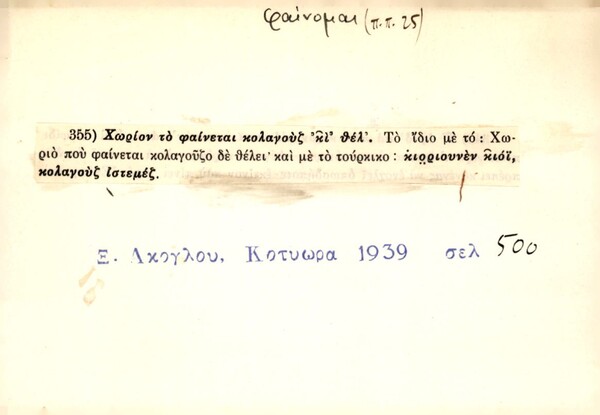 φαίνομαι (π.π. 25)
355) Χωρίον τὸ φαίνεται κολαγοὺζ ’κ̑ι’ θέλ’. Τὸ ἴδιο μὲ τό: Χω-
ριὸ ποὺ φαίνεται κολαγοῦζο δὲ θέλει· καὶ μὲ τὸ τούρκικο: κιορριουνὲν κ̑ιόϊ,
κολαγοὺζ ἰστεμέζ.
Ξ. Ακογλου, Κοτυωρα 1939 σελ 500